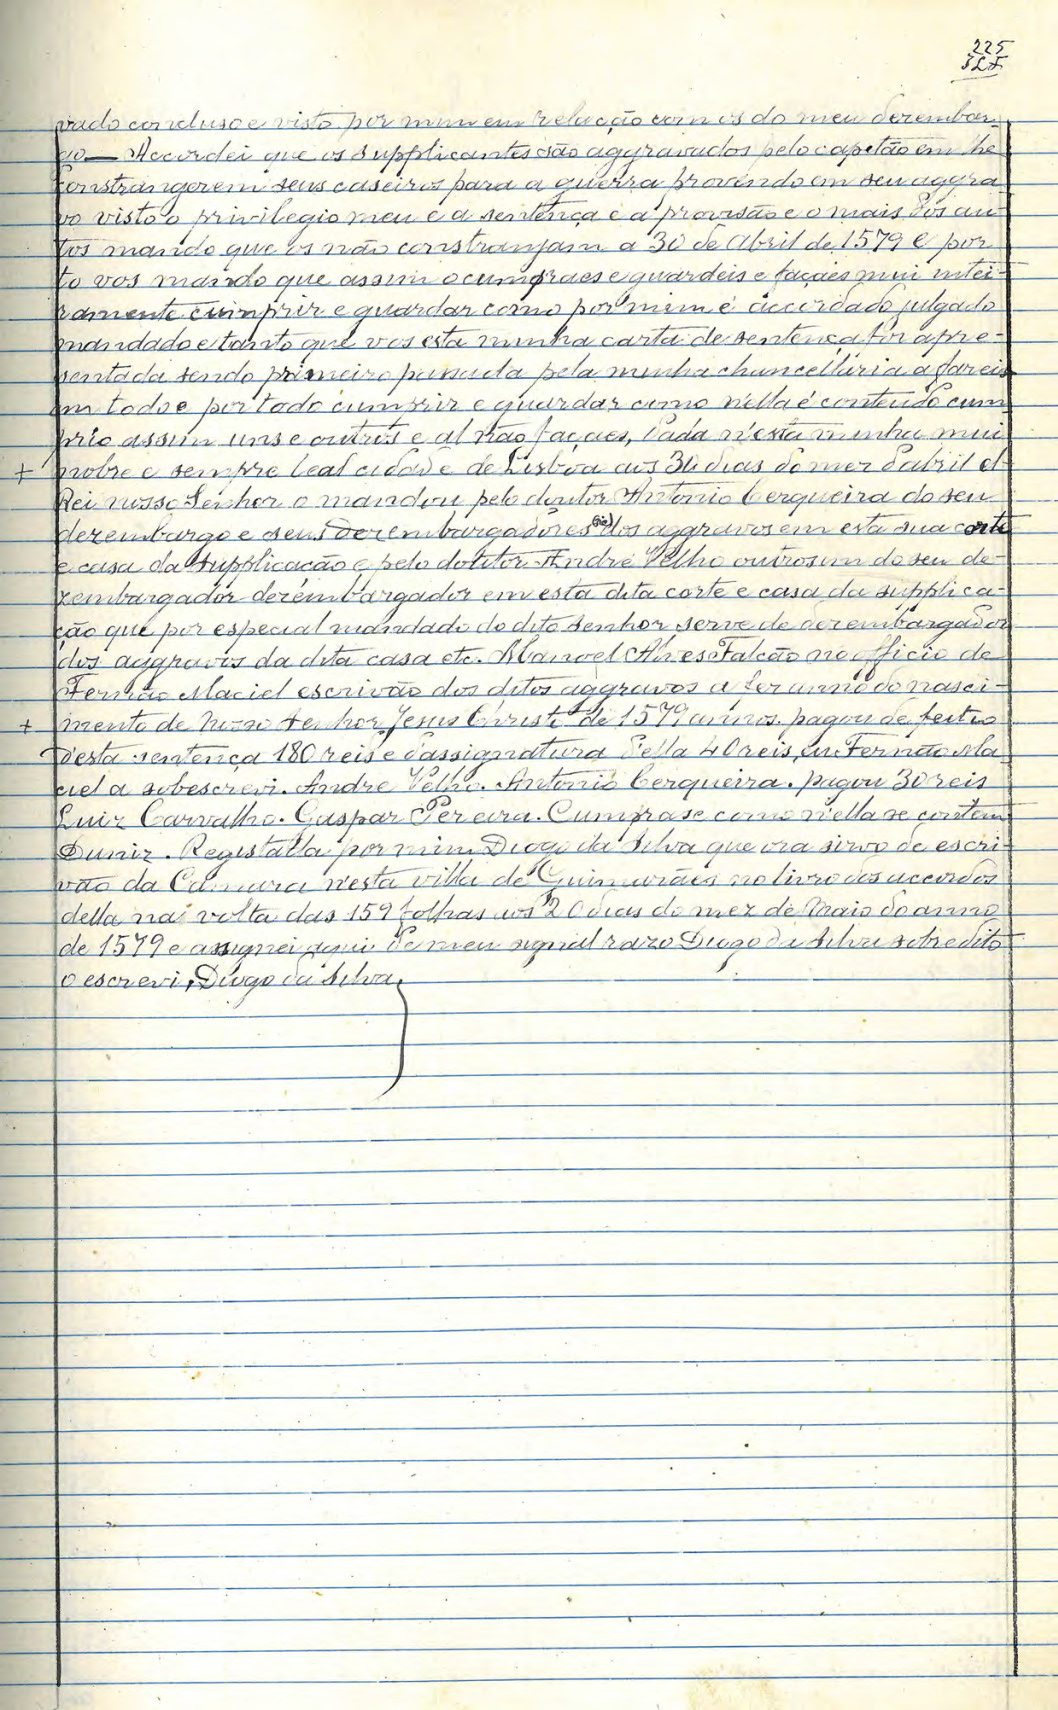 225
vado concluso e visto por mim em relação com os do meu dezembar-
go — Accordei que os supplicantes são aggravados pelo capitão em lhe
constrangerem seus caseiros para a guerra provendo em seu aggra
vo visto o privilegio meu e a sentença e a provisão e o mais dos au-
tos mando que os não constranjam a 30 de Abril de 1579 e por
to vos mando que assim o cumpraes e guardeis e façaes mui intei-
ramente cumprir e guardar como por mim é accordado julgado
mandado e tanto que vos esta minha carta de sentença for apre-
sentada sendo primeiro passada pela minha chancellaria a fareis
em todo e por todo cumprir e guardar como n'ella é conteudo cum
prio assim uns e outros e al não façaes, Dada n'esta minha mui
+ nobre e sempre leal cidade de Lisboa aos 30 dias do mez d'abril el
Rei nosso Senhor o mandou pelo doutor Antonio Cerqueira do seu
dezembargo e seus dezembargadores (sic) dos aggravos em esta sua corte
e casa da supplicação e pelo doutor André Velho outrosim do seu de-
zembargador dezembargador em esta dita corte e casa da supplica-
ção que por especial mandado do dito senhor serve de dezembargador
dos aggravos da dita casa etc. Manoel Alves Falcão no officio de
Fernão Maciel escrivão dos ditos aggravos a fez anno do nasci-
+ mento de Nosso Senhor Jesus Christo de 1579 annos. pagou de feitio
d'esta sentença 180 reis e d'assignatura d'ella 40 reis, eu Fernão Ma
ciel a sobescrevi. André Velho. Antonio Cerqueira. pagou 30 reis
Luiz Carvalho. Gaspar Pereira. Cumpra se como n'ella se contem
Duniz. Registada por mim Diogo da Silva que ora sirvo de escri-
vão da Camara n'esta villa de Guimarães no livro dos accordos
della na volta das 159 folhas aos 20 dias do mez de Maio do anno
de 1579 e assignei aqui de meu signal razo Diogo da Silva sobredito
o escrevi, Diogo da Silva,